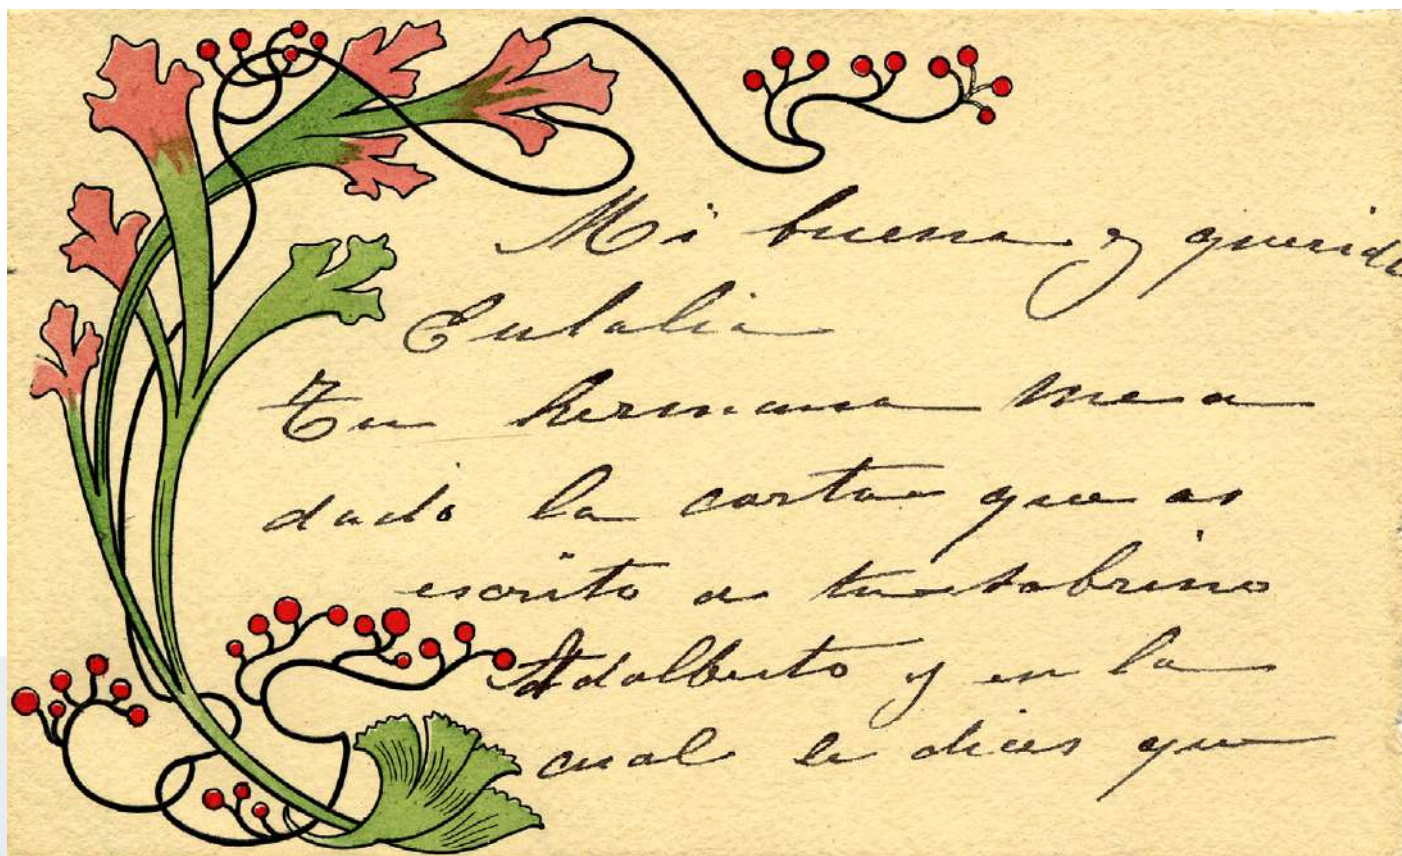 Mi buena y querida
Eulalia
Tu hermana me a
dado la carta que as
escrito a tu sobrino
Adalberto y en la
cual le dices que